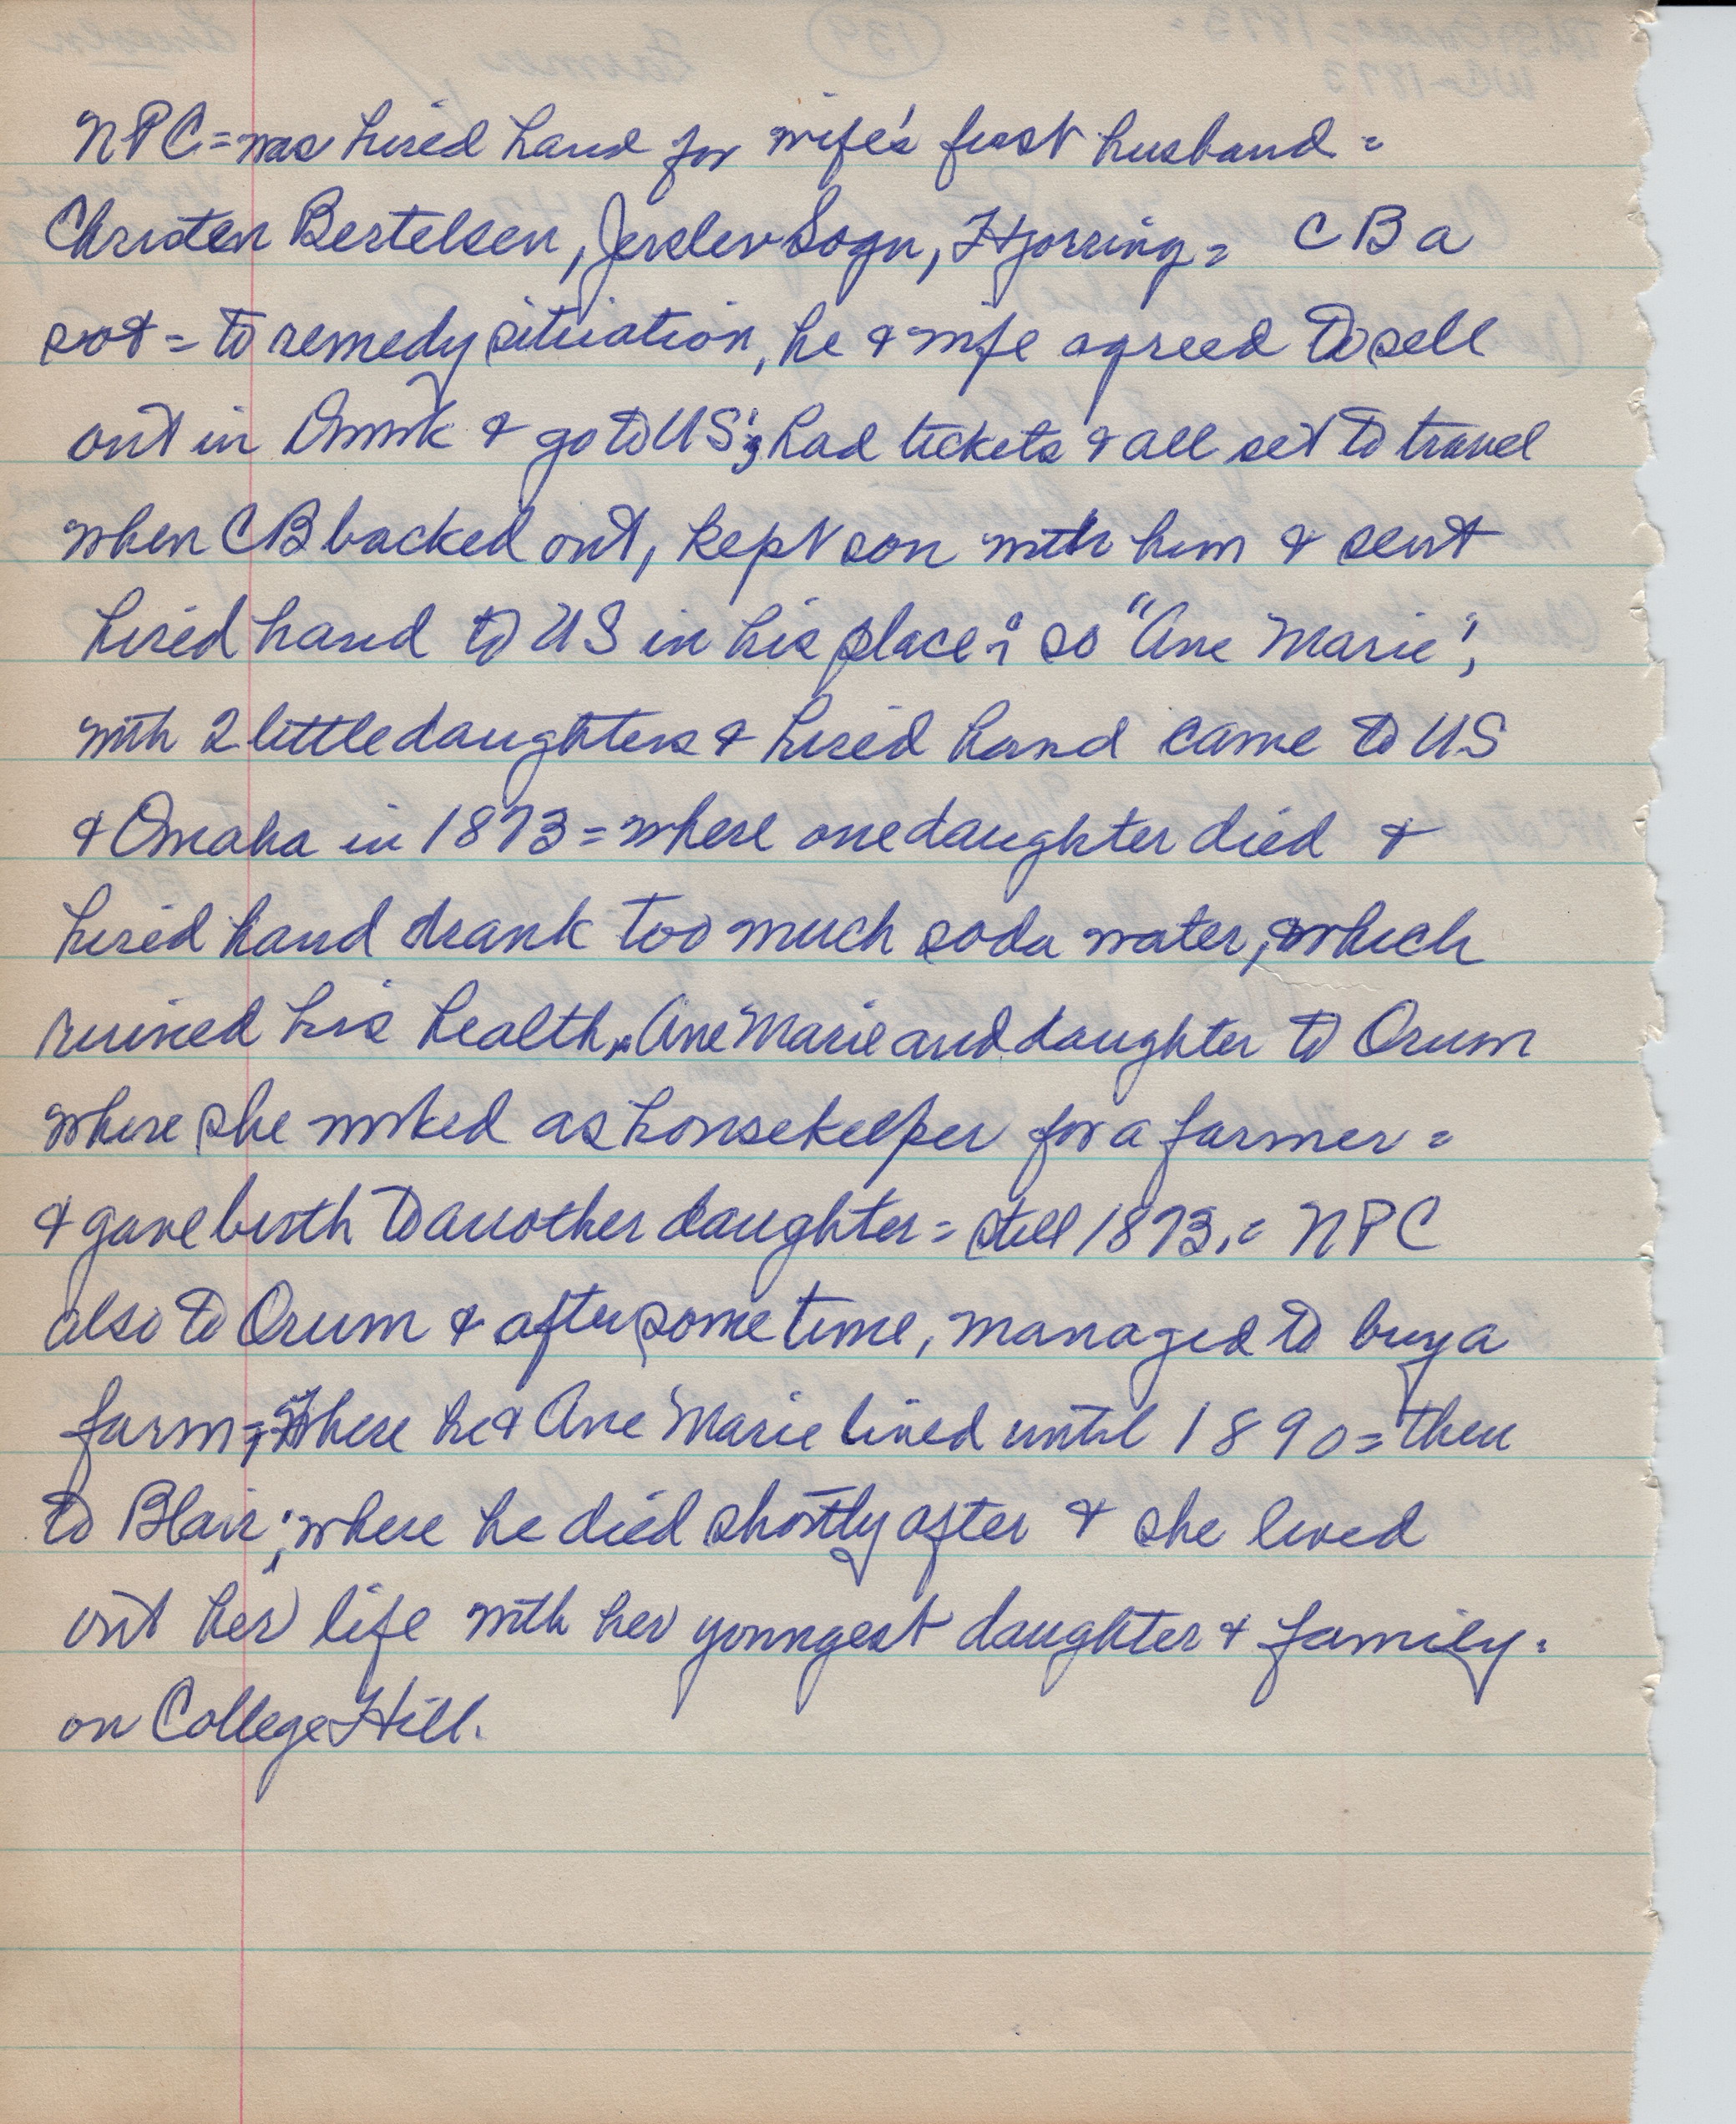 NPC = was hired hand for wife's first husband =
Christen Bertelsen, Jerslev Sogn, Hjorring = CB a
sot = to remedy situation, he & wife agreed to sell
out in Dnmk & go to US; had tickets & all set to travel
when CB backed out, kept son with him & sent
hired hand to US in his place; so "Ane Marie",
with 2 little daughters & hired hand came to US
& Omaha in 1873 = where one daughter died &
hired hand drank too much soda water, which
ruined his health. Ane Marie and daughter to Orum
where she worked as housekeeper for a farmer =
& gave birth to another daughter = still 1873. = NPC
also to Orum & after some time, managed to buy a
farm; where he & Ane Marie lived until 1890 = then
to Blair; where he died shortly after & she lived
out her life with her youngest daughter & family.
on College Hill.